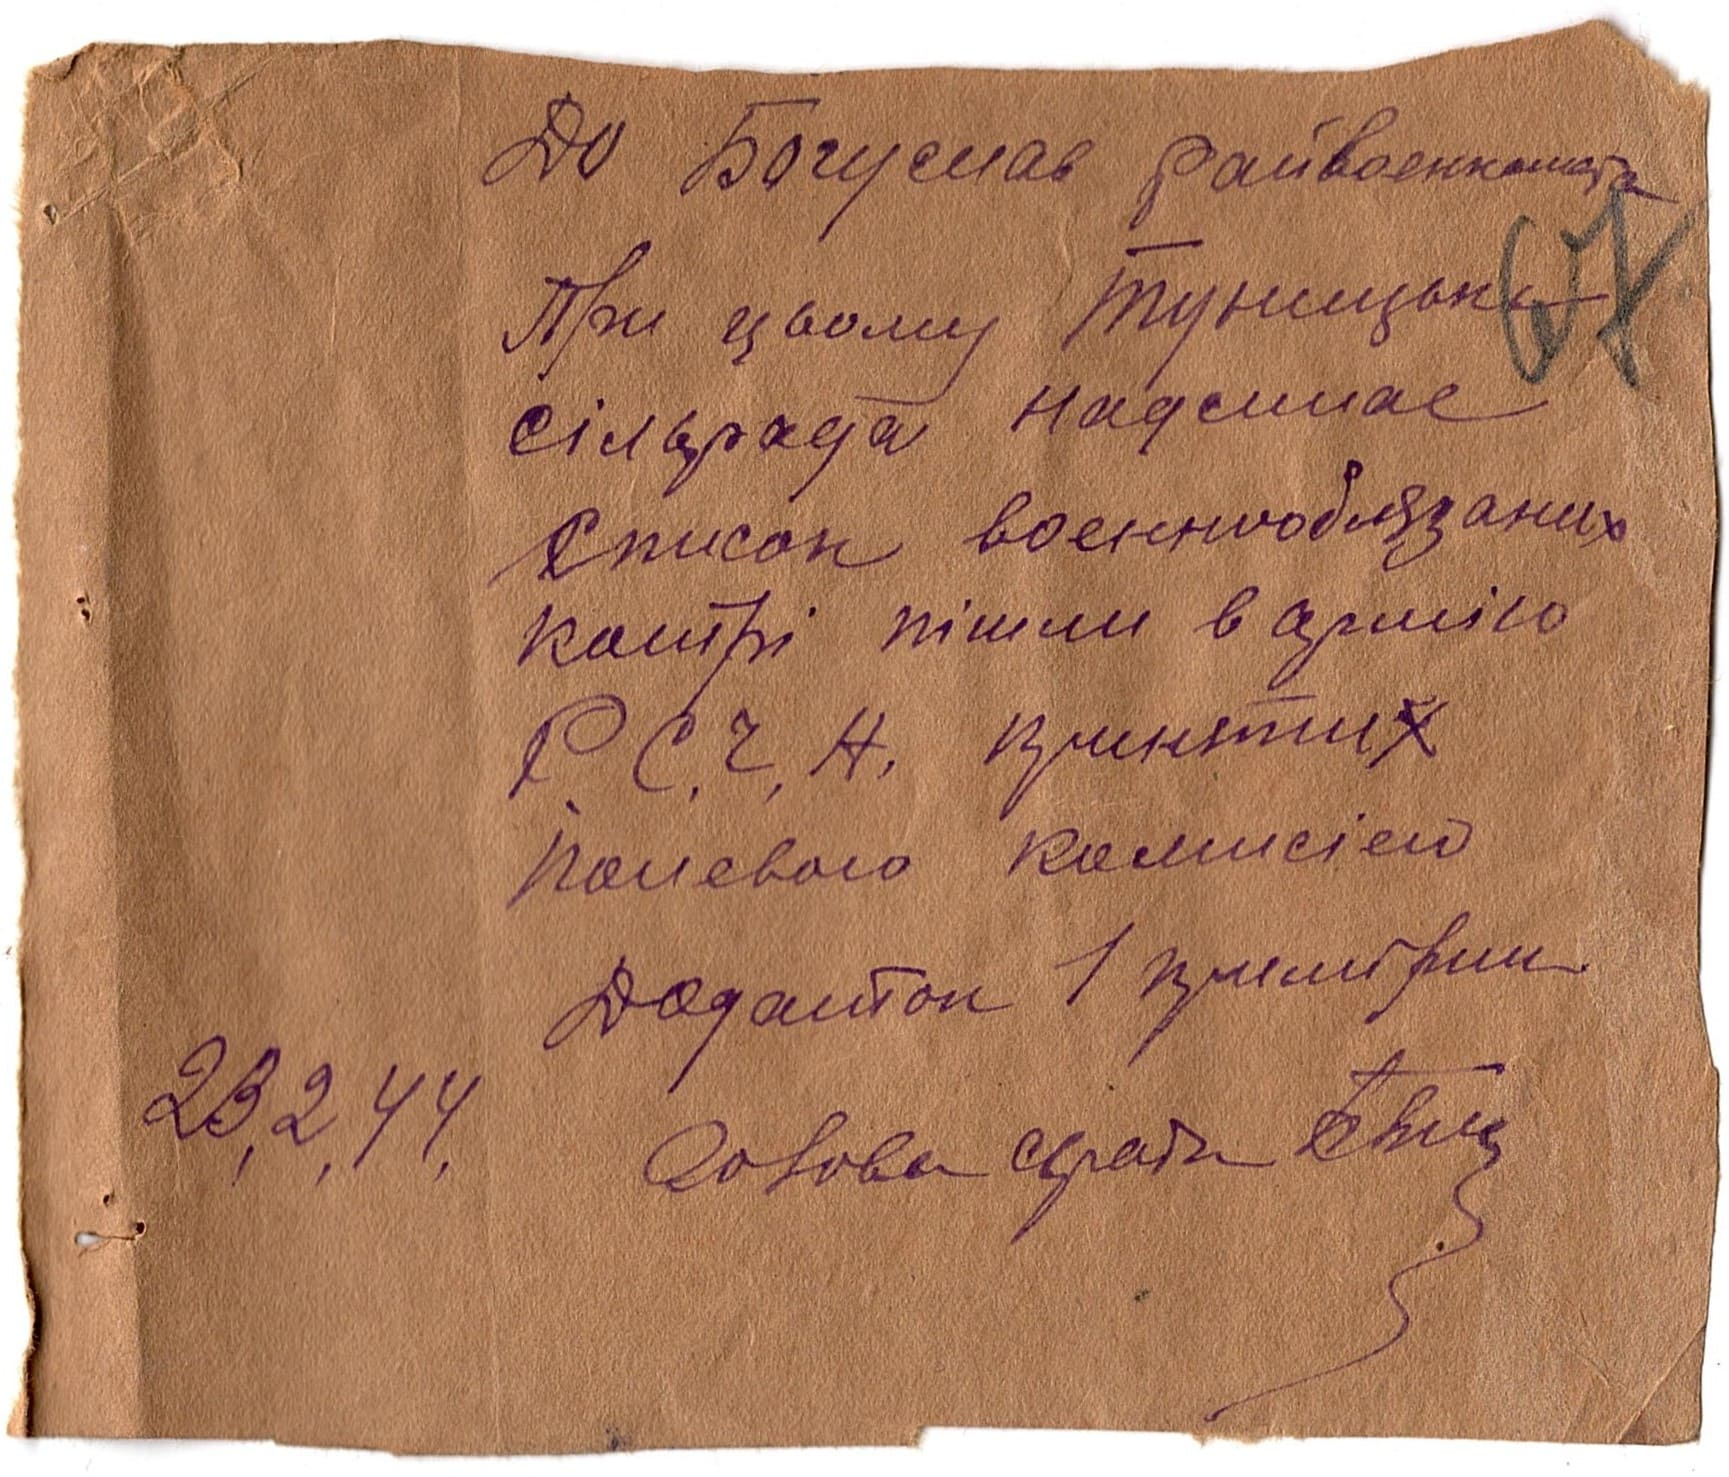 До Богуслав райвоенкомата
67
При цьому Туницька
сільрада надсилає
список военнообязаних
котрі пішли в армію
Р.С.Ч.А. взятих
полевою комисією
Додаток 1 примірник
23,2,44,
Голова с/ради